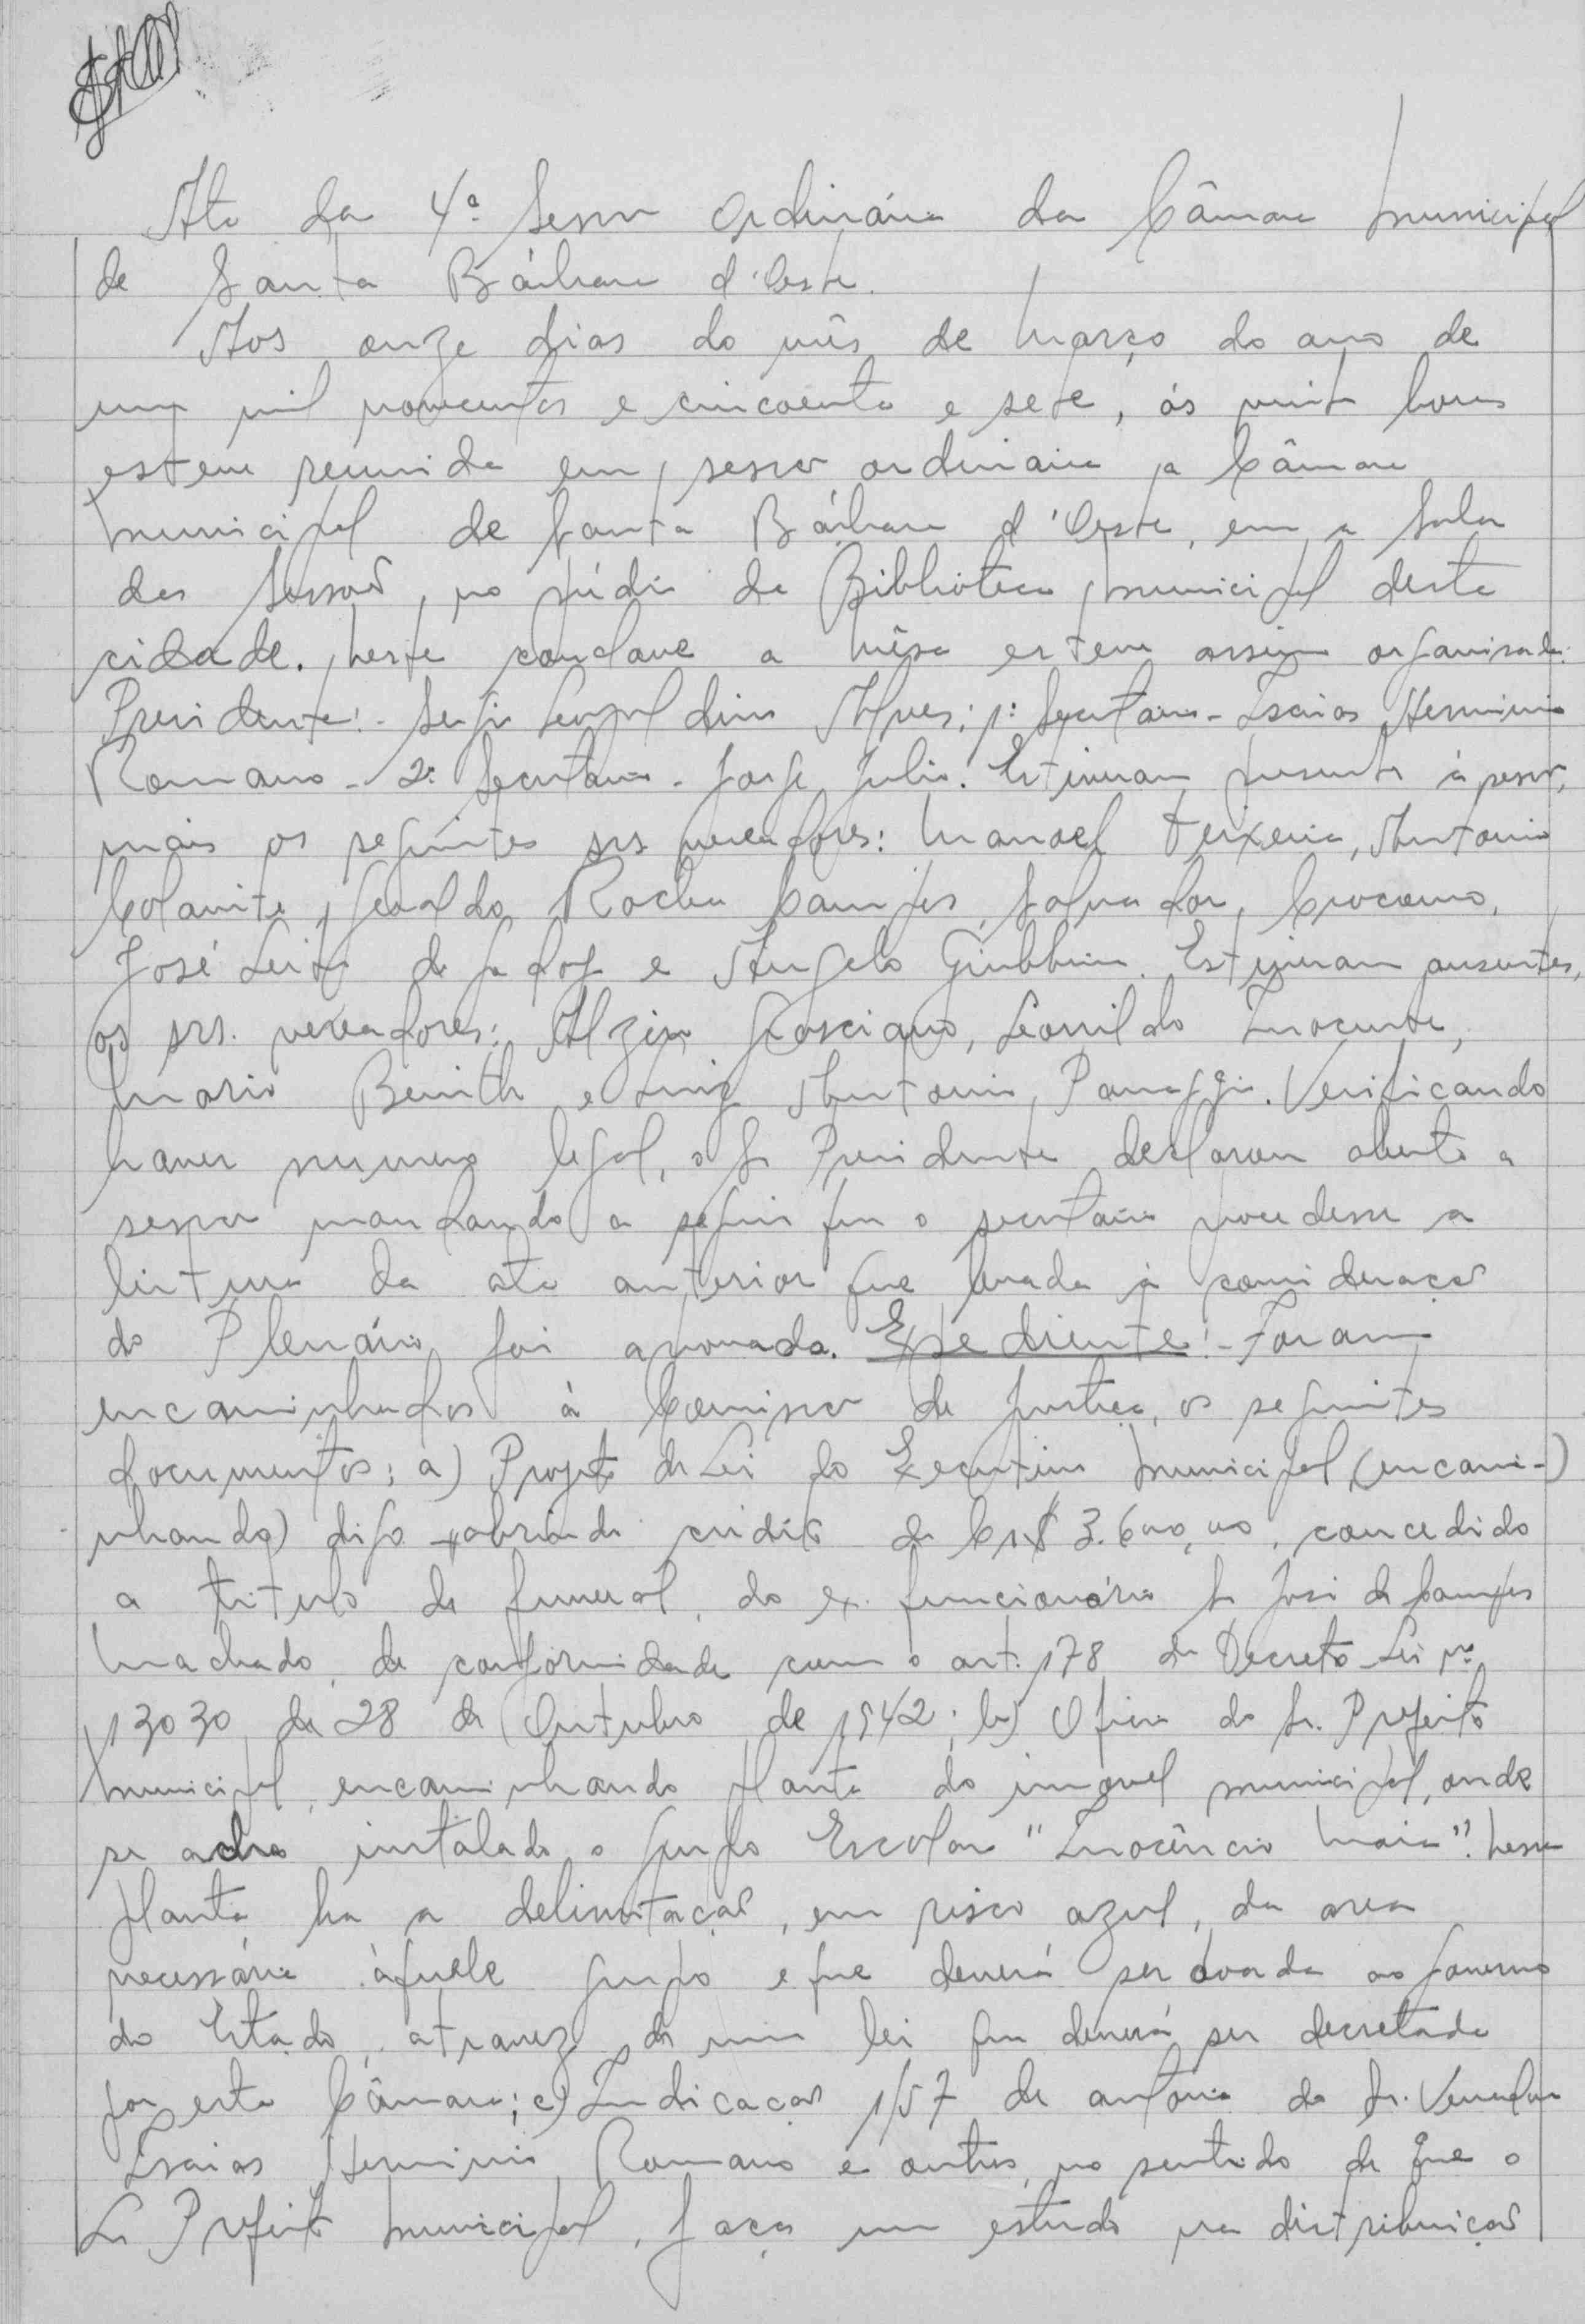 Ata da 4ª Sessão Ordinária da Câmara Municipal
de Santa Bárbara d'Oeste.
Aos onze dias do mês de Março do ano de
um mil novecentos e cincoenta e sete, ás vinte horas
esteve reunida em sessão ordinaria a Câmara
Municipal de Santa Bárbara d'Oeste, em a Sala
das Sessões, no prédio da Biblioteca Municipal desta
cidade. Neste conclave a Mêsa esteve assim organisada:
Presidente:- Sergio Leopoldino Alves; 1º Secretario - Isaias Herminio
Romano - 2º Secretario - Jorge Julio. Estiveram presentes á sessão,
mais os seguintes srs vereadores: Manoel Teixeira, Antonio
Geraldo Rocha Campos, Salvador
José Leite de Godoy e Angelo Giubbina. Estiveram ausentes,
os srs. vereadores: Alzira Leonildo Inocente,
Mario e Luiz Antonio Panaggio. Verificando
haver numero legal, o Sr Presidente declarou aberta a
sessão mandando a seguir que o secretario procedesse a
leitura da ata anterior que levada á consideração
do Plenário foi aprovada. Expediente:- Foram
encaminhados á Comissão de Justiça, os seguintes
documentos: a) Projeto de Lei do Executivo Municipal (encami-)
nhando) digo abrindo credito de Cr$ 3.600,00, concedido
a titulo de funeral, do ex. funcionário Sr José de Campos
Machado, de conformidade com o art. 178 do Decreto-Lei nº
13030 de 28 de Outubro de 1942; b) Oficio do Sr. Prefeito
Municipal, encaminhando planta do imovel municipal, onde
se acha instalado o Grupo Escolar "Inocêncio Maia". Nessa
planta ha a delimitação, em risco azul, da area
necessária àquele grupo e que deverá ser doada ao Governo
do Estado, atravez de uma lei que deverá ser decretada
por esta Câmara; c) Indicação 1/57 de autoria do Sr. Vereador
Isaias Herminio Romano e outros, no sentido de que o
Sr Prefeito Municipal, faça um estudo na distribuição